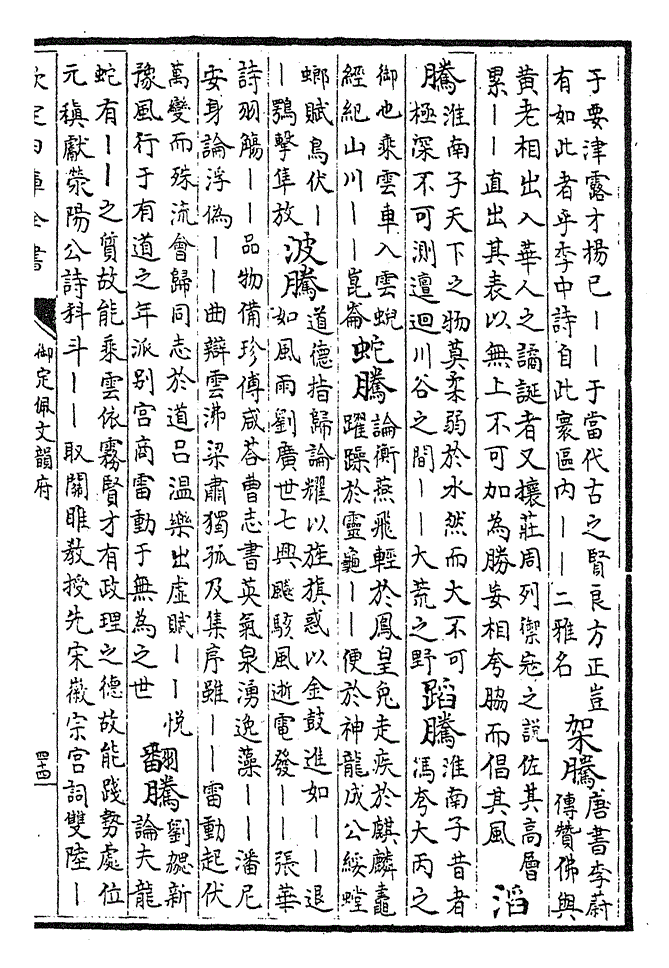 于要津露才揚已——于當代古之賢良方正豈
有如此者乎李中詩自此寰區內——二雅名
架騰
唐書李蔚
傳贊佛與
黃老相出入華人之譎誕者又攘莊周列禦寇之說佐其高層
累——直出其表以無上不可加為勝妄相夸脇而倡其風
滔
騰
淮南子天下之物莫柔弱於水然而大不可
極深不可測邅迴川谷之間——大荒之野
蹈騰
淮南子昔者
馮夸大丙之
御也乘雲車入雲蜺
經紀山川——崑崙
蛇騰
論衡燕飛輕於鳳皇兔走疾於麒麟鼃
躍躁於靈龜——便於神龍成公綏螳
螂賦鳥伏—
—鶚擊隼放
波騰
道德指歸論耀以旌旗惑以金鼓進如——退
如風雨劉廣世七興飈駭風逝電發——張華
詩羽觴——品物備珍傅咸荅曹志書英氣泉湧逸藻——潘尼
安身論浮偽——曲辯雲沸梁肅獨孤及集序雖——雷動起伏
萬變而殊流會歸同志於道呂温樂出虛賦——悅
豫風行于有道之年派别宮商雷動于無為之世
翻騰
劉勰新
論夫龍
蛇有——之質故能乘雲依霧賢才有政理之德故能踐勢處位
元稹獻滎陽公詩科斗——取關雎教授先宋徽宗宮詞雙陸—
欽定四庫全書
御定佩文韻府
四十四